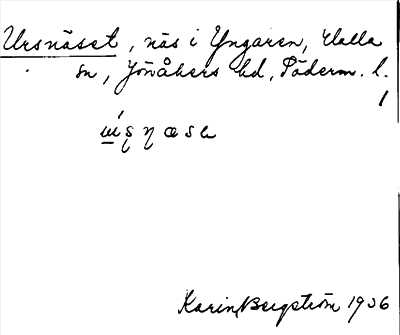 Ursnäset, näs i Yngaren, Halla
sn, Jönåkers hd, Söderm. l.
1
Karin Bergström 1936